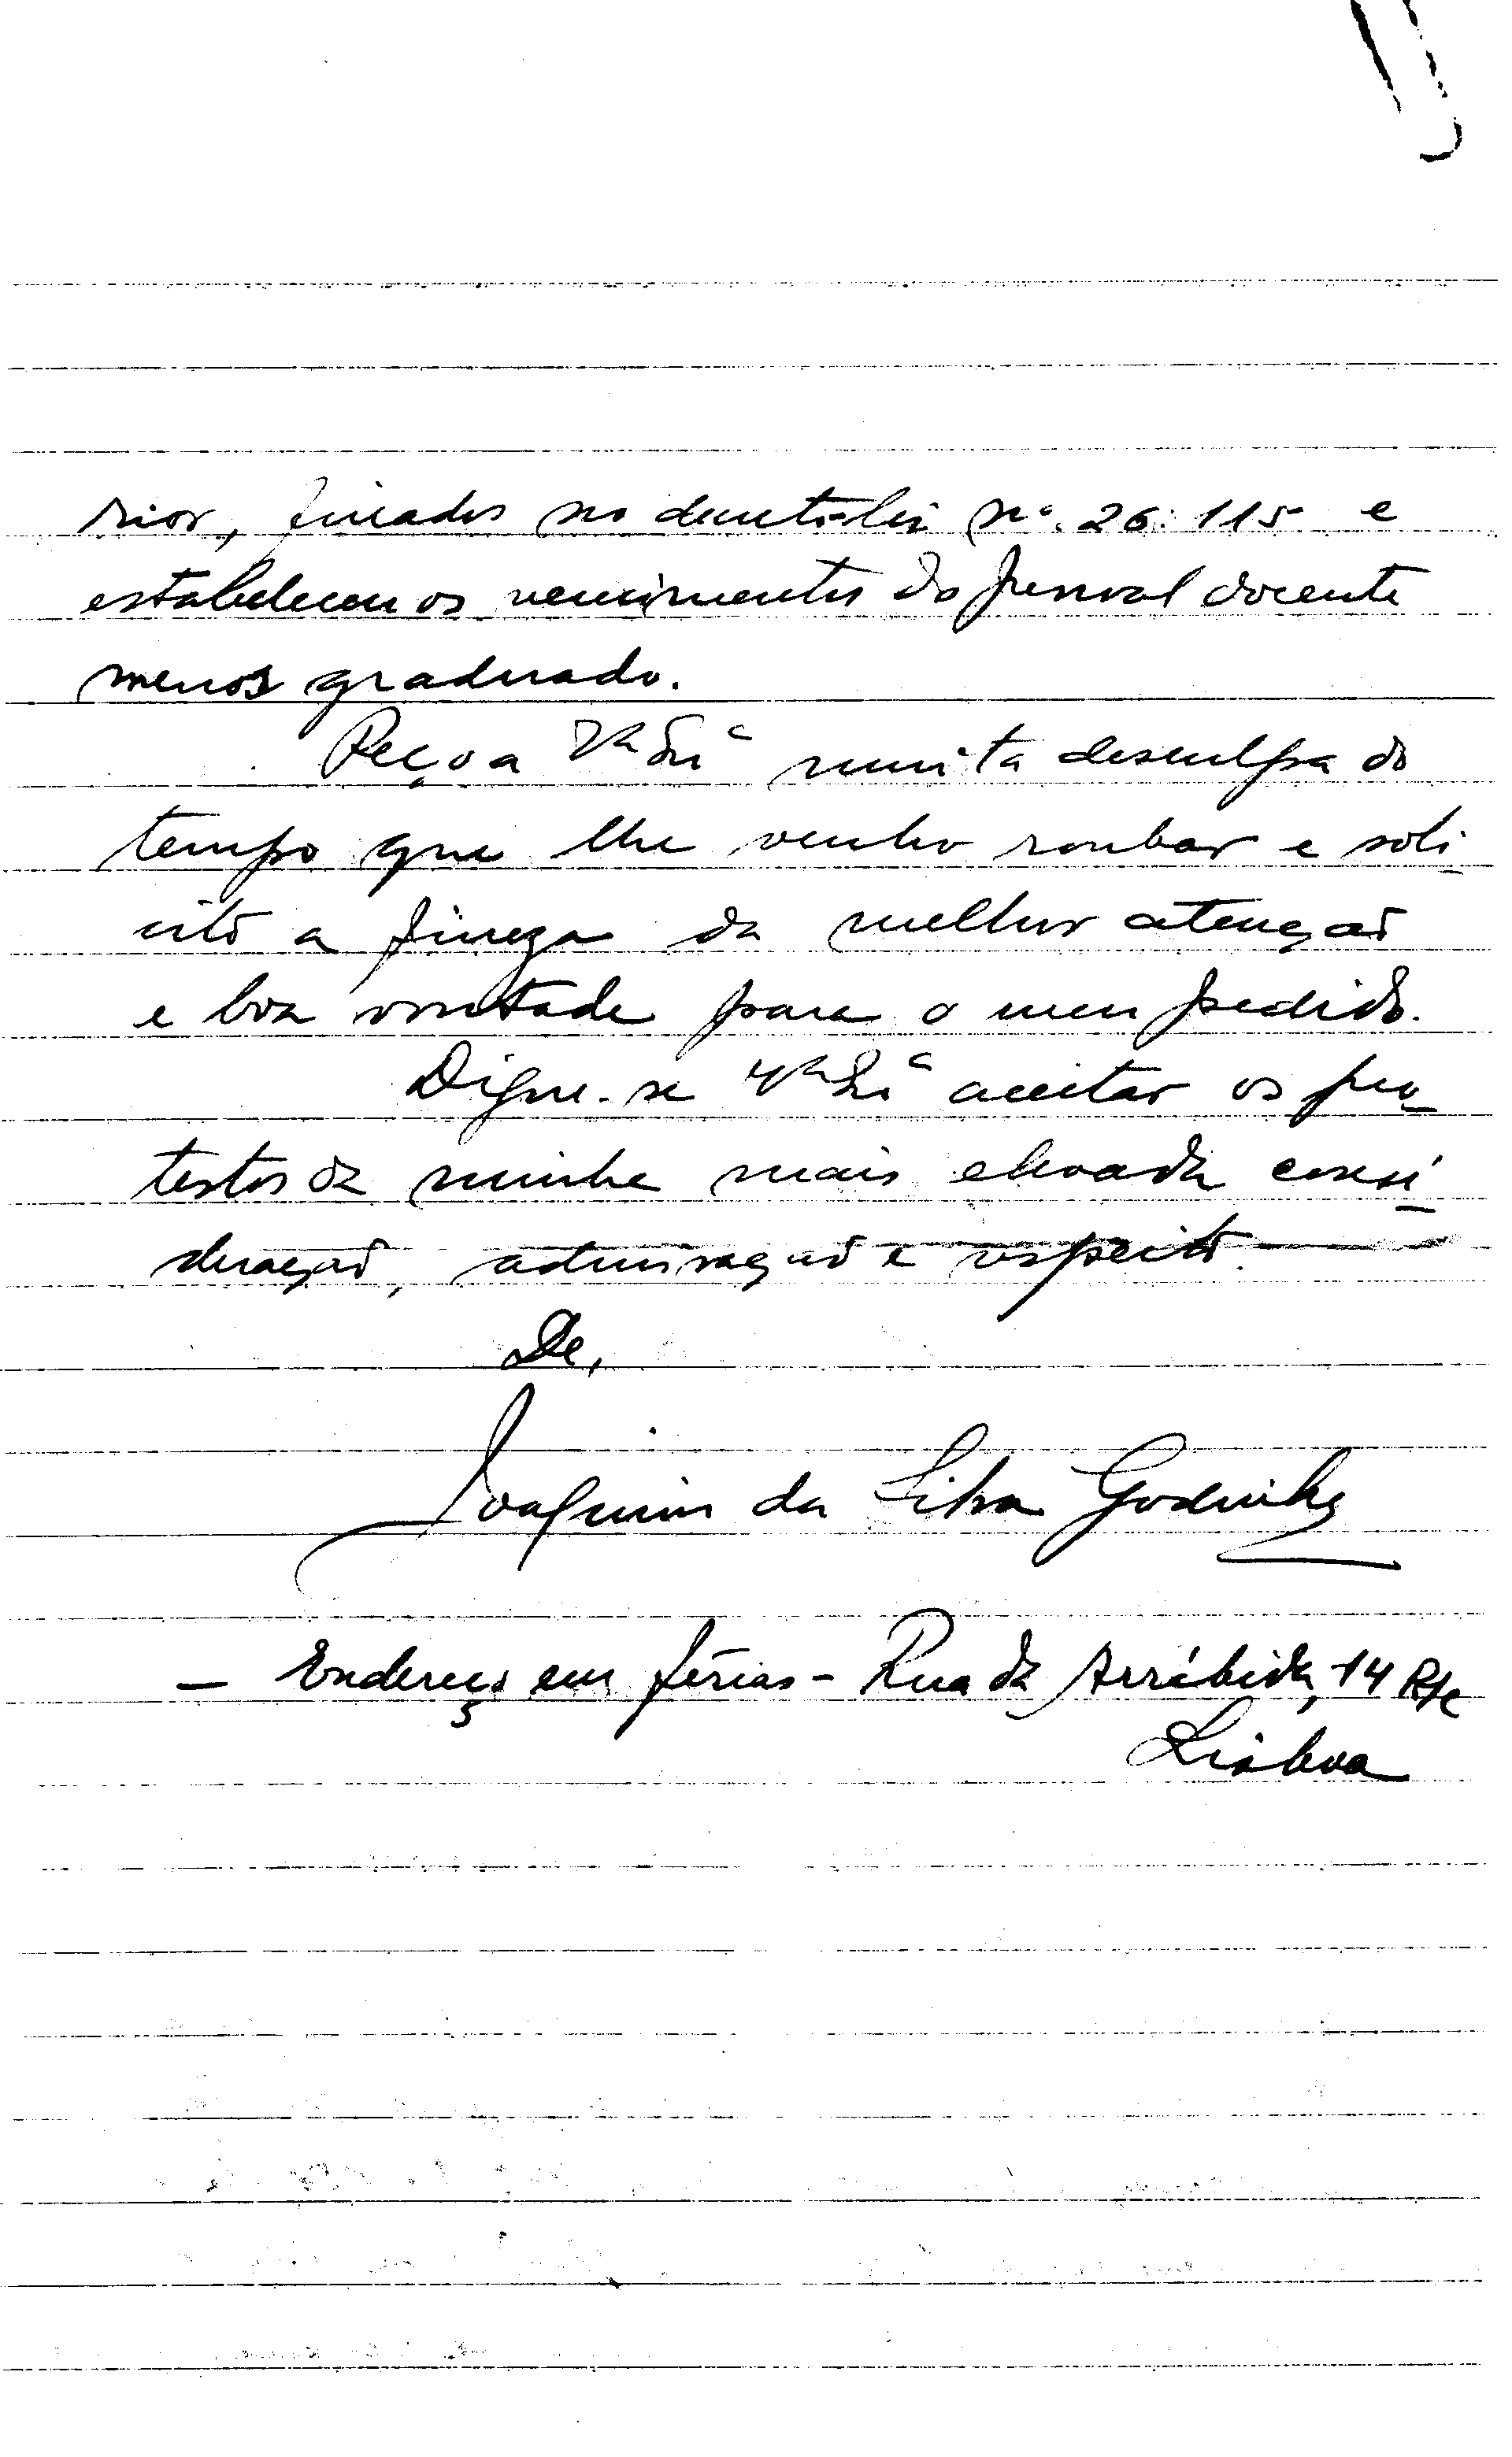 rior, fixados no decreto-lei nº. 26:115 e
estabelecem os vencimentos do pessoal docente
menos graduado.
Peço a Vª Exª muita desculpa do
tempo que lhe venho roubar e soli
cito a fineza da melhor atenção
e boa vontade para o meu pedido.
Digne-se Vª Exª aceitar os pro
testos da minha mais elevada consi
deração, admiração e respeito.
De,
Joaquim da Silva Godinho
- Endereço em férias - Rua da Arrábida, 14 R/c
Lisboa